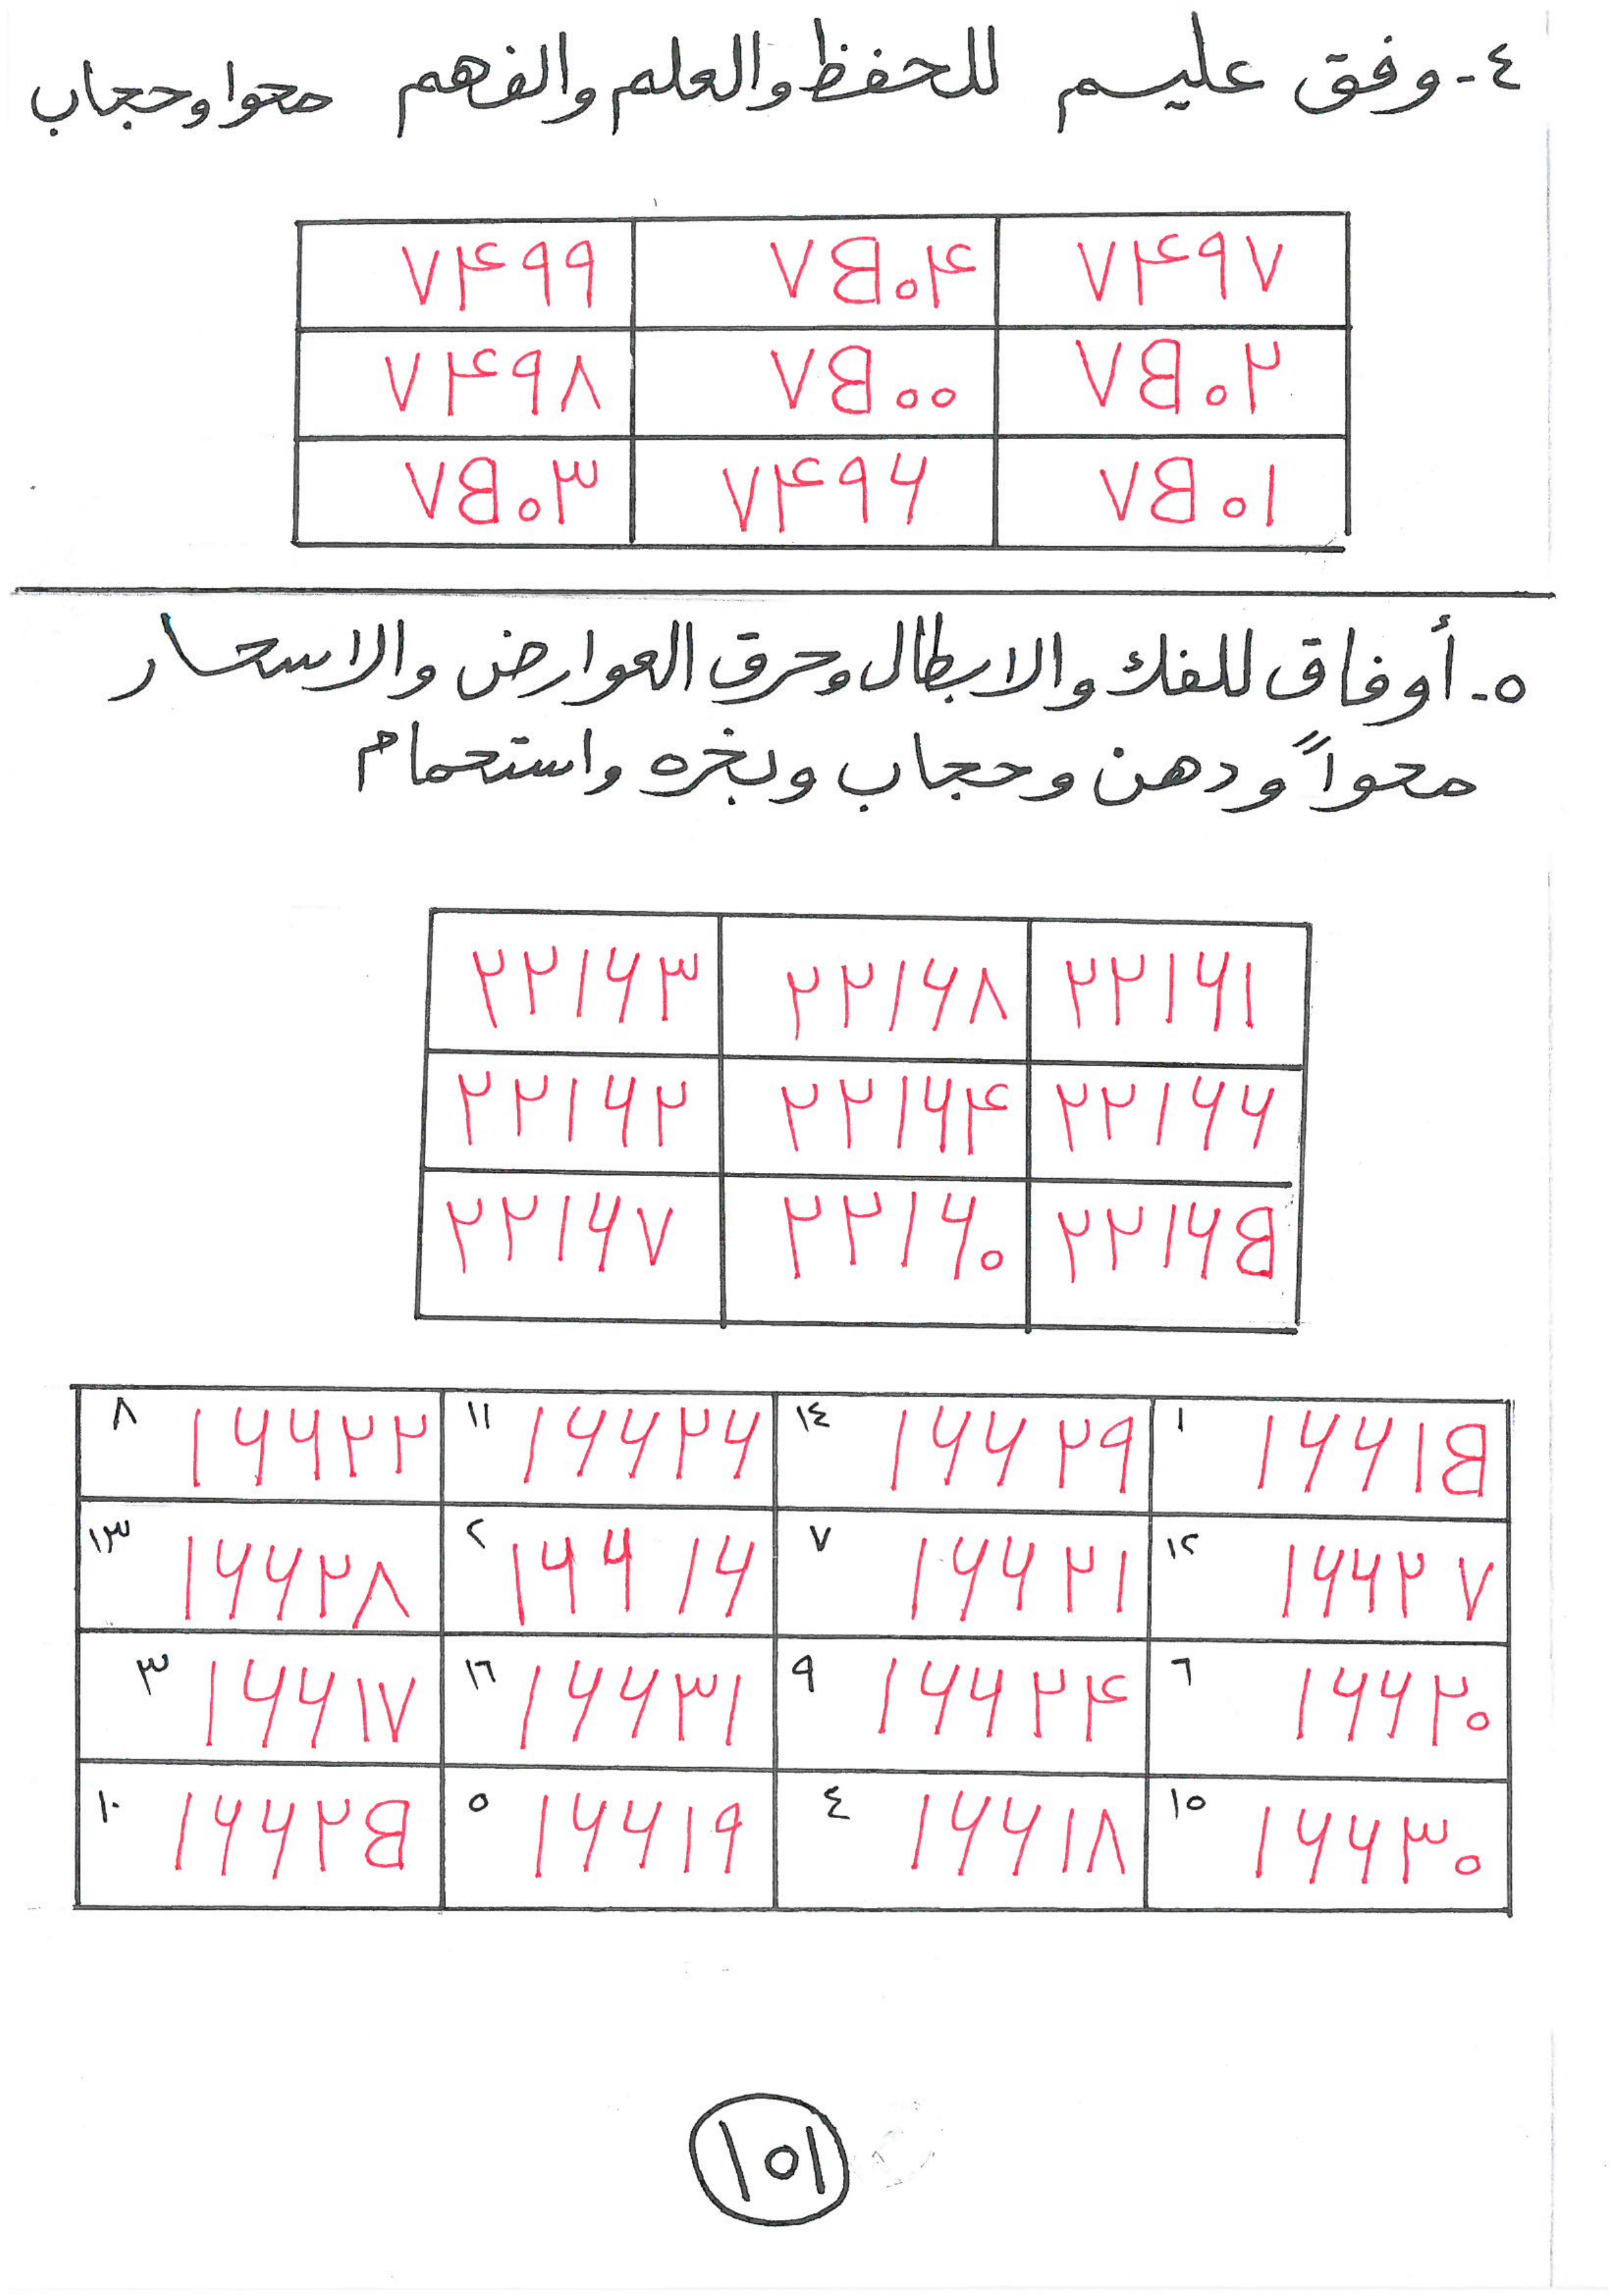 ٤- وفق عليم للحفظ والعلم والفهم محوا وحجاب
٧۴٩٧ ٧٥٠۴ ٧۴٩٩
٧٥٠٢ ٧٥٠٠ ٧۴٩٨
٧٥٠١ ٧۴٩٦ ٧٥٠٣
٥- أوفاق للفك والابطال وحرق العوارض والاسحار
محواً ودهن وحجاب وبخره واستحمام
٢٢١٦١ ٢٢١٦٨ ٢٢١٦٣
٢٢١٦٦ ٢٢١٦۴ ٢٢١٦٢
٢٢١٦٥ ٢٢١٦٠ ٢٢١٦٧
١٦٦١٥ ١ ١٦٦٢٩ ١٤ ١٦٦٢٦ ١١ ١٦٦٢٢ ٨
١٦٦٢٧ ١٢ ١٦٦٢١ ٧ ١٦٦١٦ ٢ ١٦٦٢٨ ١٣
١٦٦٢٠ ٦ ١٦٦٢۴ ٩ ١٦٦٣١ ١٦ ١٦٦١٧ ٣
١٦٦٣٠ ١٥ ١٦٦١٨ ٤ ١٦٦١٩ ٥ ١٦٦٢٥ ١٠
١٥١